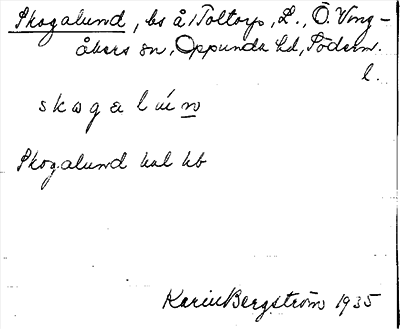 Skogalund, bs å Toltorp, L., Ö. Ving-
åkers sn, Oppunda hd, Söderm.
l.
skogalun
Skogalund hal hb
Karin Bergström 1935